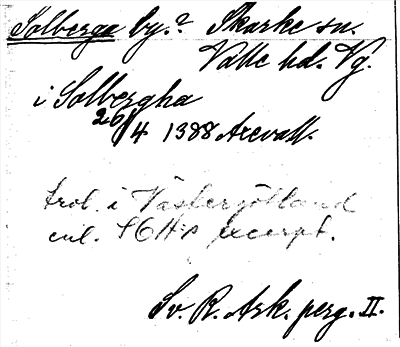 Solberga by.? Skarke sn.
Valle hd. Vg.
i Solbergha
26/4 1388 Arevall.
trol. i Västergötland
enl. SOH:s excerpt.
Sv. R. Ark. perg. II.